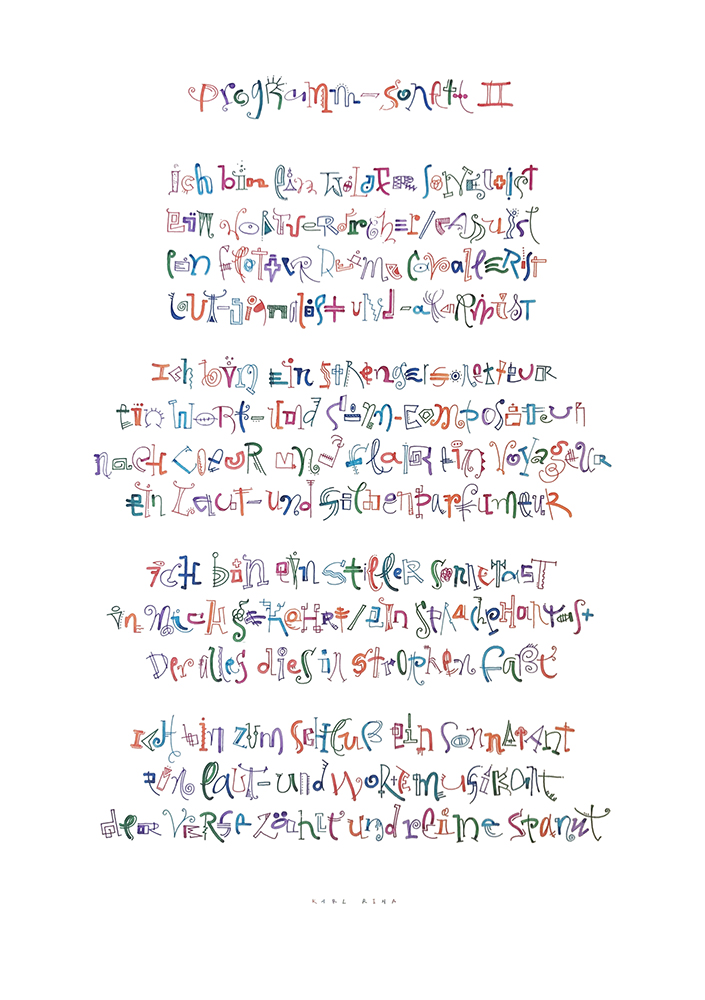 Programm-Sonett II
ich bin ein wilder Sonetoist
ein Wortverdreher/Casuist
ein flotter Reime Cavallerist
Laut-signalist und -alarmist
Ich bin ein strenger Sonetteur
ein Wort- und Sinn-Compositeur
nach Coeur und Claque ein Voyageur
ein Laut- und Silbenparfumeur
ich bin ein stiller Sonnetast
in mich gekehrt/ein Sprachphantast
Der alles dies in strophen faßt
ich bin zum schluß ein Sonnetant
ein laut- und Wortmusikant
der Verse zählt und reime spannt
KARL RIHA